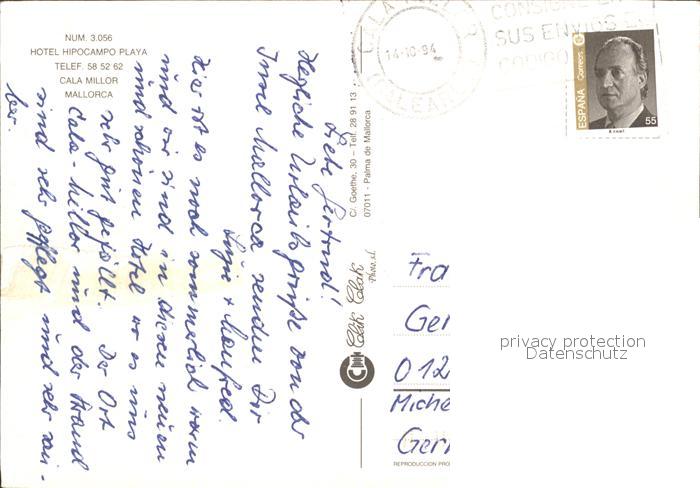 NUM. 3.056
HOTEL HIPOCAMPO PLAYA
TELEF. 58 52 62
CALA MILLOR
MALLORCA
Liebe Gertrud!
Herzliche Urlaubsgrüße von der
Insel Mallorca senden Dir
+ Manfred.
Hier ist es noch sommerlich warm
und wir sind in diesem neuen
und schönen Hotel wo es uns
sehr gut gefällt. Der Ort
Cala-Millor und der Strand
sind sehr gepflegt und sehr sau-
ber.
C/. Goethe, 30 – Telf. 28 91 13
07011 - Palma de Mallorca
Clik Clak
Photo, s.l.
CALA
14-10-94
BALEARES
CONSIGNE EN
SUS ENVIOS EL
CODIGO
ESPAÑA Correos
55
Fra
Ger
012
Miche
Ger
REPRODUCCION PRO
privacy protection
Datenschutz